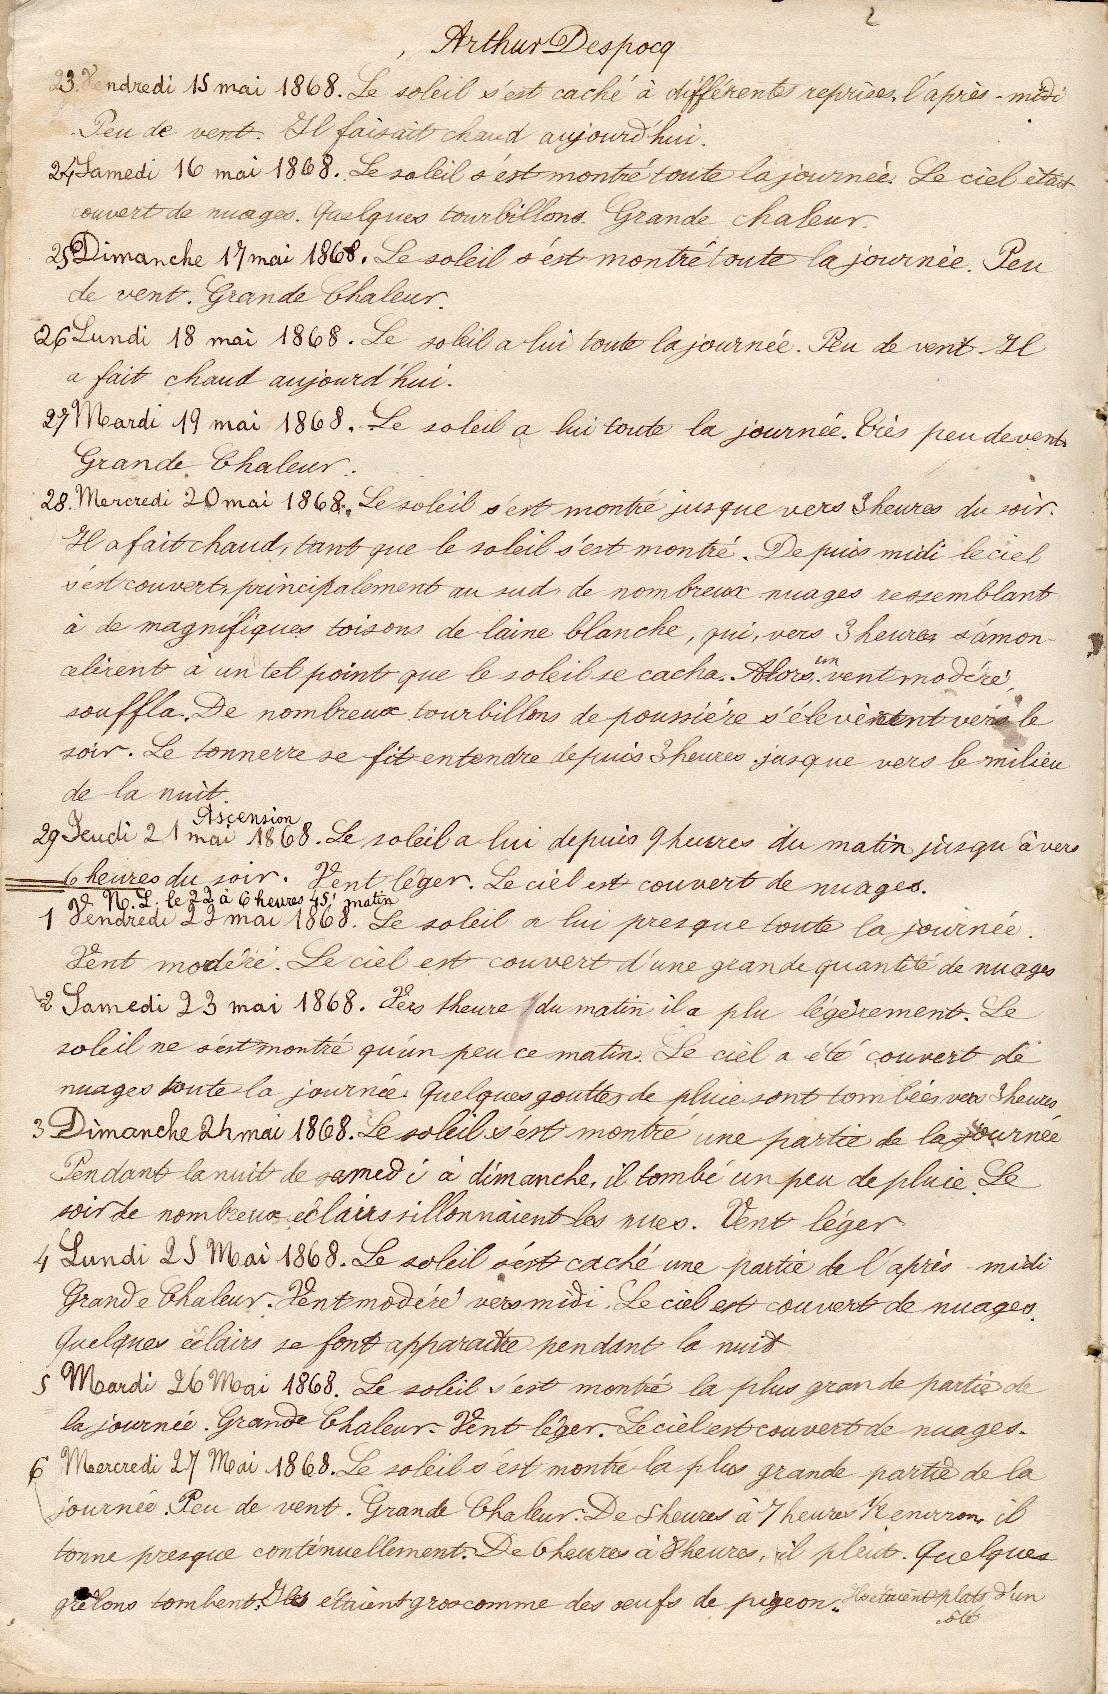 2
Arthur Despocq
23. Vendredi 15 mai 1868. Le soleil s'est caché à différentes reprises, l'après-midi
Peu de vent. Il faisait chaud aujourd'hui.
24 Samedi 16 mai 1868. Le soleil s'est montré toute la journée. Le ciel était
couvert de nuages. Quelques tourbillons. Grande chaleur.
25 Dimanche 17 mai 1868. Le soleil s'est montré toute la journée. Peu
de vent. Grande Chaleur.
26 Lundi 18 mai 1868. Le soleil a lui toute la journée. Peu de vent. Il
a fait chaud aujourd'hui.
27 Mardi 19 mai 1868. Le soleil a lui toute la journée. Très peu de vent.
Grande Chaleur.
28. Mercredi 20 mai 1868. Le soleil s'est montré jusque vers 3 heures du soir.
Il a fait chaud, tant que le soleil s'est montré. Depuis midi le ciel
s'est couvert, principalement au sud, de nombreux nuages ressemblant
à de magnifiques toisons de laine blanche, qui, vers 3 heures s'amon-
celèrent à un tel point que le soleil se cacha. Alors un vent modéré,
souffla. De nombreux tourbillons de poussière s'élevèrent vers le
soir. Le tonnerre se fit entendre depuis 3 heures jusque vers le milieu
de la nuit.
Ascension
29 Jeudi 21 mai 1868. Le soleil a lui depuis 9 heures du matin jusqu'à vers
6 heures du soir. Vent léger. Le ciel est couvert de nuages.
N. L. le 22 à 6 heures 45' matin
1 Vendredi 22 mai 1868. Le soleil a lui presque toute la journée.
Vent modéré. Le ciel est couvert d'une grande quantité de nuages
2 Samedi 23 mai 1868. Vers 1 heure du matin il a plu légèrement. Le
soleil ne s'est montré qu'un peu ce matin. Le ciel a été couvert de
nuages toute la journée. Quelques gouttes de pluie sont tombées vers 3 heures
3 Dimanche 24 mai 1868. Le soleil s'est montré une partie de la journée
Pendant la nuit de samedi à dimanche, il tombé un peu de pluie. Le
soir de nombreux éclairs sillonnaient les nues. Vent léger
4 Lundi 25 Mai 1868. Le soleil s'est caché une partie de l'après-midi
Grande Chaleur. Vent modéré vers midi. Le ciel est couvert de nuages.
Quelques éclairs se font apparaître pendant la nuit
5 Mardi 26 Mai 1868. Le soleil s'est montré la plus grande partie de
la journée. Grande Chaleur. Vent léger. Le ciel est couvert de nuages.
6 Mercredi 27 Mai 1868. Le soleil s'est montré la plus grande partie de la
journée. Peu de vent. Grande Chaleur. De 5 heures à 7 heures 1/2 environ, il
tonne presque continuellement. De 6 heures à 8 heures, il pleut. Quelques
grêlons tombent. Ils étaient gros comme des œufs de pigeon. Ils étaient plats d'un
côté